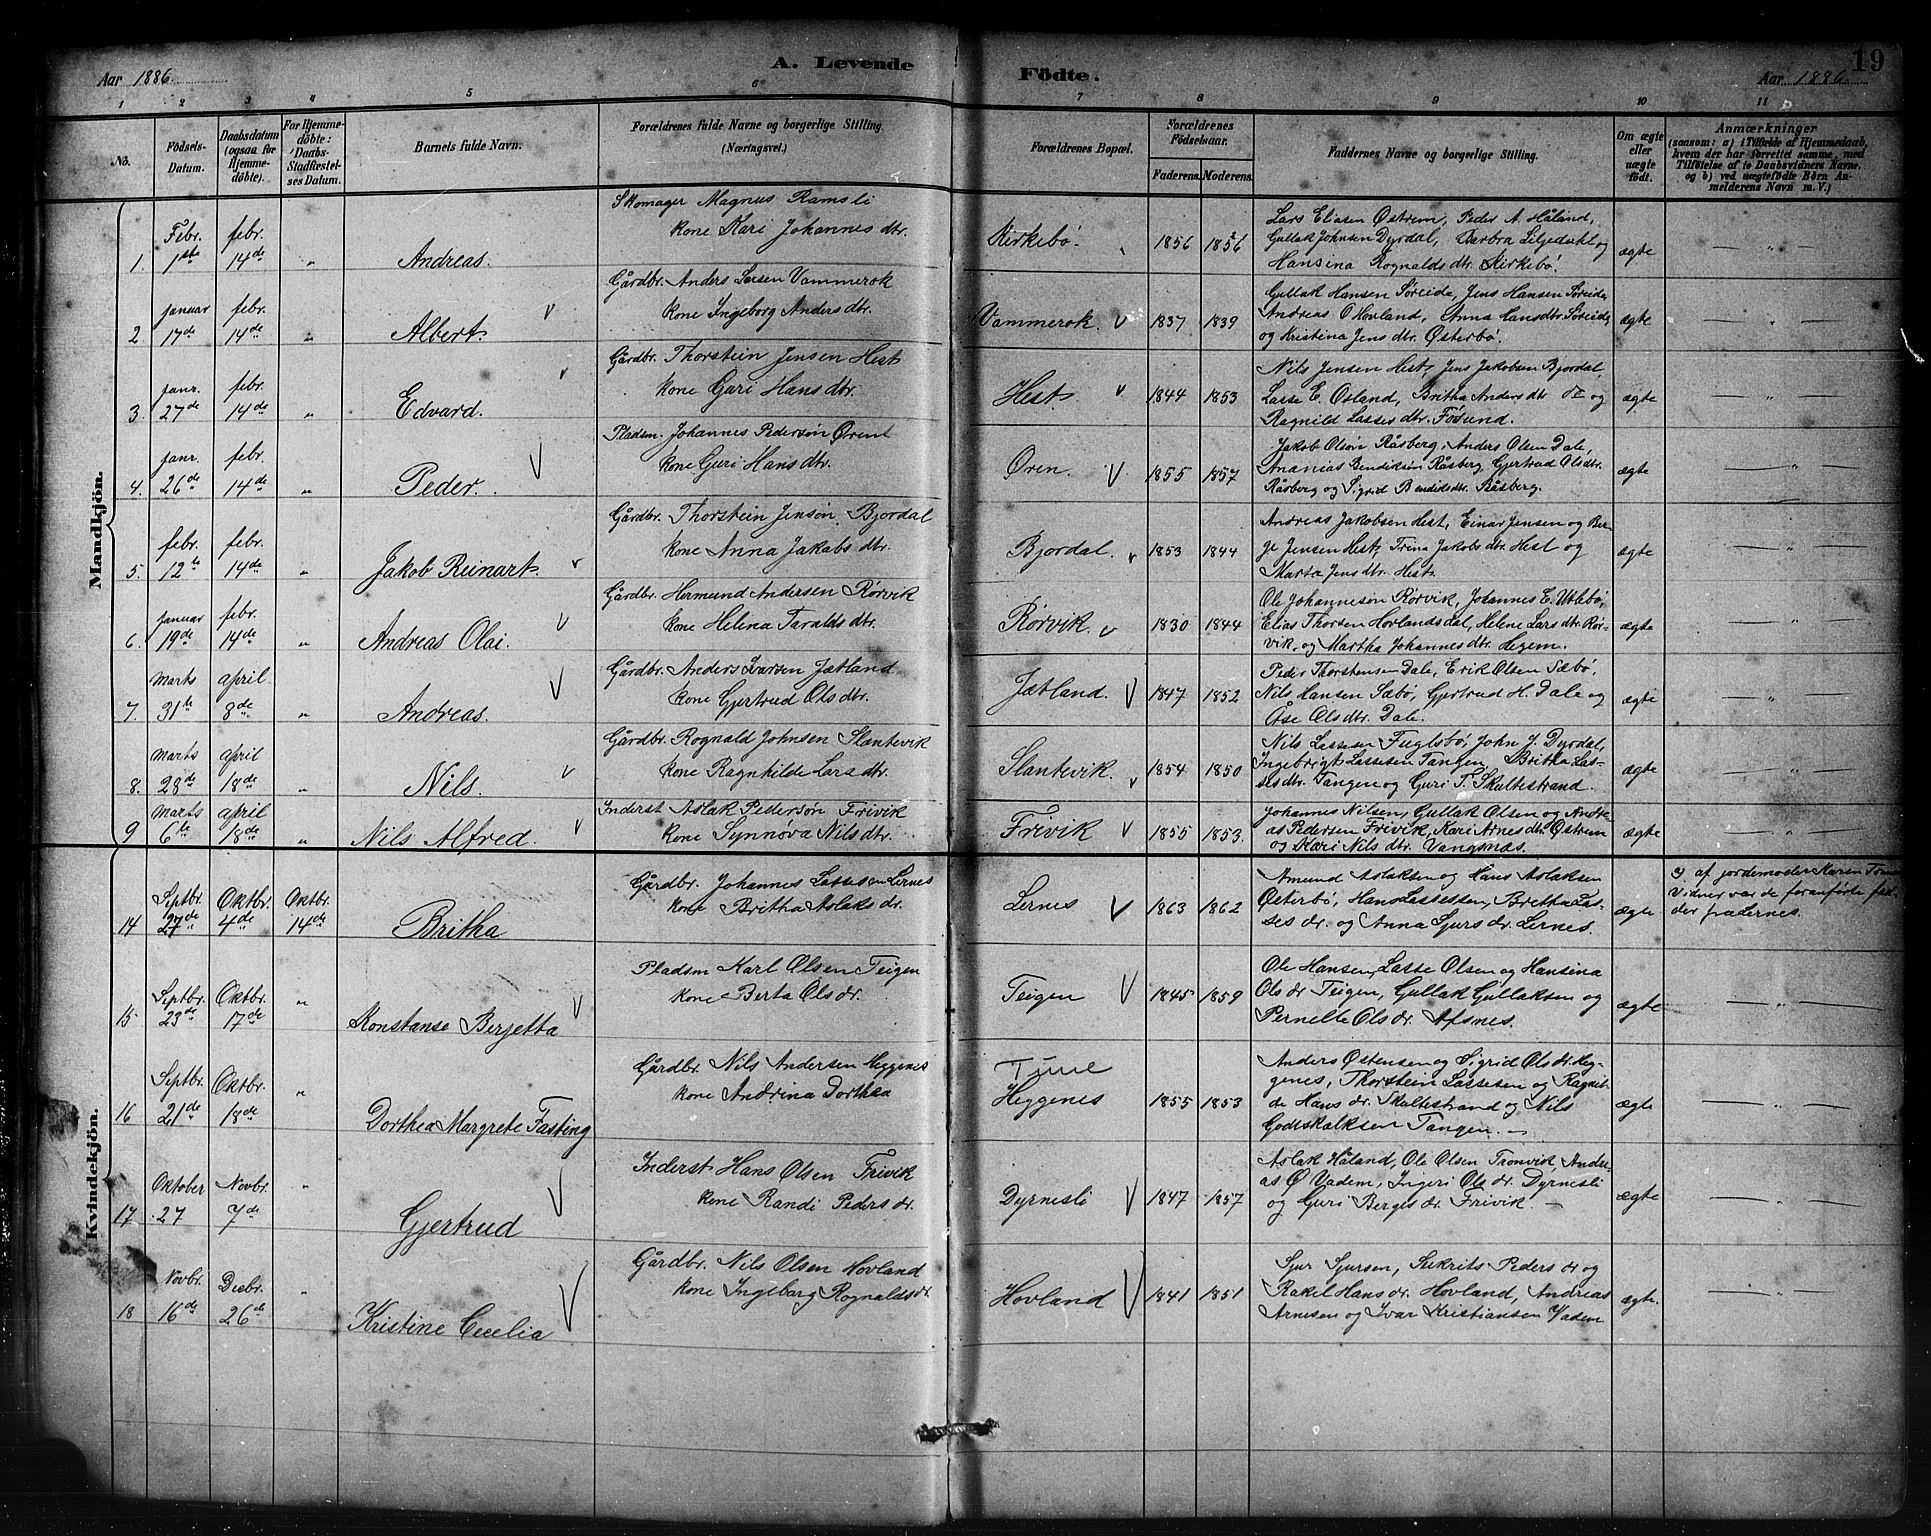 19
A. Levende Födte.
Aar 1886
Aar 1886
1 2 3 4 5 6 7 8 9 10 11
No.
Födsels-
Datum.
Daabsdatum
(ogsaa for
Hjemme-
döbte).
For Hjemme-
döbte:
Daabs-
Stadfæstel-
ses Datum.
Barnets fulde Navn.
Forældrenes fulde Navne og borgerlige Stilling.
(Næringsvei.)
Forældrenes Bopæl.
Forældrenes
Födselsaar.
Faderens. Moderens.
Faddernes Navne og borgerlige Stilling.
Om ægte
eller
uægte
födt.
Anmærkninger
(saasom: a) i Tilfælde af Hjemmedaab,
hvem der har forrettet samme, med
Tilföielse af to Daabsvidners Navne.
og b) ved uægtefödte Börn An-
melderens Navn m. V.)
Mandkjön.
1. Febr. 1ste febr. 14de " Andreas.
Skomager Magnus Ramsli
kone Kari Johannes dtr.
Kirkebö. 1856 1856
Lars Eliasen Østrem, Peder A. Håland,
Gullak Johnsen Dyrdal, Barbra Liljedahl og
Hansina Rognalds dtr. Kirkebö.
ægte — " —
2 januar 17de febr. 14de " Albert.
Gårdbr. Anders Larsen Vammerok
kone Ingeborg Anders dtr.
Vammerok. 1837 1839
Gullak Hansen Söreide, Jens Hansen Söreide,
Andreas O Hovland, Anna Hansdtr Söreide,
og Kristina Jens dtr. Østerbö.
ægte — " —
3. janr. 27de febr. 14de " Edvard.
Gårdbr. Thorstein Jensen Hest
kone Guri Hans dtr.
Hest. 1844 1853
Nils Jensen Hest, Jens Jakobsen Bjordal,
Lasse E. Osland, Britha Anders dtr do og
Ragnild Lasses dtr. Fösund.
ægte — " —
4. janr. 26de febr. 14de " Peder.
Pladsm. Johannes Pedersøn Øren
kone Guri Hans dtr.
Øren. 1855 1857
Jakob Olsøn Råsberg, Anders Olsen Dale,
Ananias Bendiksen Råsberg, Gjertrud Olsdtr.
Råsberg og Sigrid Bendiksdtr. Råsberg.
ægte — " —
5. febr. 12te febr. 14de " Jakob Reinart.
Gårdbr. Thorstein Jensøn Bjordal
kone Anna Jakobs dtr.
Bjordal. 1853 1844
Andreas Jakobsen Hest, Einar Jensen og Ber-
ge Jensen Hest, Trina Jakobs dtr. Hest og
Marta Jens dtr. Hest.
ægte — " —
6. januar 19de febr. 14de " Andreas Olai.
Gårdbr. Hermund Andersen Rörvik
kone Helena Taralds dtr.
Rörvik. 1830 1844
Ole Johannesøn Rörvik, Johannes E. Utlebö,
Elias Thorsen Hovlandsdal, Helene Lars dtr. Rör-
vik, og Martha Johannes dtr. Hegem.
ægte — " —
7. Marts 31te april 8de " Andreas.
Gårdbr. Anders Ivarsen Jætland
kone Gjertrud Ols dtr.
Jætland. 1847 1852
Peder Thorstensen Dale, Erik Olsen Sæbö,
Nils Hansen Sæbö, Gjertrud H. Dale og
Åse Ols dtr. Dale.
ægte — " —
8. Marts 28de april 18de " Nils.
Gårdbr. Rognald Johnsen Slantevik
kone Ragnhilde Lars dtr.
Slantevik. 1854 1850
Nils Lassesen Fuglsbö, John J. Dyrdal,
Ingebrigt Lassesen Tangen, Britha Las-
sesdtr. Tangen og Guri T. Skultestrand.
ægte — " —
9 Marts 6te april 18de " Nils Alfred.
Inderst Aslak Pedersøn Frivik
kone Synnöva Nils dtr.
Frivik 1855 1853.
Johannes Nilsen, Gullak Olsen og Andre-
as Pedersen Frivik, Kari Arnes dtr. Østrem
og Kari Nils dtr. Vangsnæs.
ægte — " —
Kvindekjön.
14 Septbr. 27de Oktbr. 4de Oktbr. 14de Britha
Gårdbr. Johannes Lassesen Lernes
kone Britha Aslaks dr.
Lernes 1863 1862
Amund Aslaksen og Hans Aslaksen
Østerbö, Hans Lassessen, Britha Las-
ses dr. og Anna Sjurs dr. Lernes.
ægte
af jordemoder Karen
Vidner var de foranförte fad-
der fra Lernes.
15 Septbr. 23de Oktbr. 17de " Konstanse Berjetta
Pladsm Karl Olsen Teigen
kone Berta Ols dr.
Teigen 1845 1859
Ole Hansen, Lasse Olsen og Hansina
Ols dr Teigen, Gullak Gullaksen og
Pernelle Ols dr. Afsnes.
ægte — " —
16 Septbr. 21de Oktbr. 18de " Dorthea Margrete Fasting
Gårdbr Nils Andersen Heggenes
kone Andrina Dorthea
Tune
Heggenes 1855 1853
Anders Østensen og Sigrid Ols dr. Heg-
genes, Thorstein Lassesen og Ragnil-
da Hans dr. Skultestrand og Nils
Godtskalksen Tangen. —
ægte — " —
17 Oktober 27 Novbr. 7de " Gjertrud
Inderst Hans Olsen Frivik
kone Randi Peders dr.
Dyrnesli 1847 1857
Aslak Håland, Ole Olsen Tronvik, Andre-
as O Vadem, Ingeri Ols dr. Dyrnesli
og Guri Berges dr. Frivik. —
ægte — " —
18 Novbr. 16de Decbr. 26de " Kristine Cecelia
Gårdbr. Nils Olsen Hovland
kone Ingeborg Rognalds dr.
Hovland 1841 1851
Sjur Sjursen, Sukrits Peders dr og
Rakel Hans dr. Hovland, Andreas
Arnesen og Ivar Kristiansen Vadem
ægte. — " —